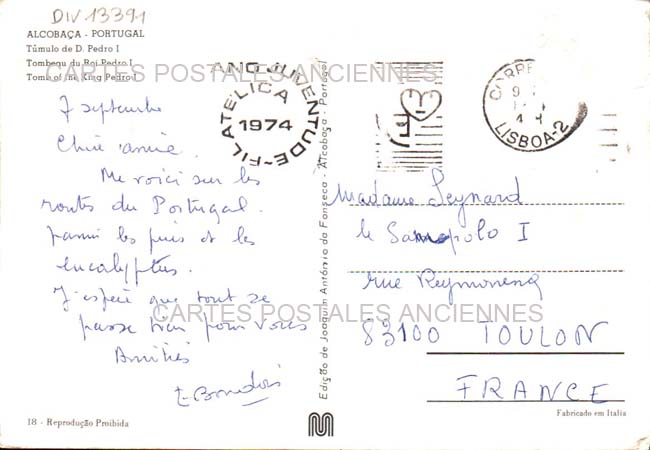 DIV.13391
ALCOBAÇA - PORTUGAL
Túmulo de D. Pedro I
Tombeau du Roi Pedro I
Tomb of the King Pedro I
CARTES POSTALES ANCIENNES
ANO JUVENTUDE-FILATELICA
1974
CORRE
9
4
LISBOA-2
7 septembre
Chère amie.
Me voici sur les
routes du Portugal.
parmi les pins et les
eucalyptus.
J'espère que tout se
passe bien pour vous
Amitiés
Edição de Joaquim António da Fonseca - Alcobaça - Portugal
Madame Leynard
le I
rue
83100 TOULON
FRANCE
CARTES POSTALES ANCIENNES
18 - Reprodução Proibida
Fabricado em Italia